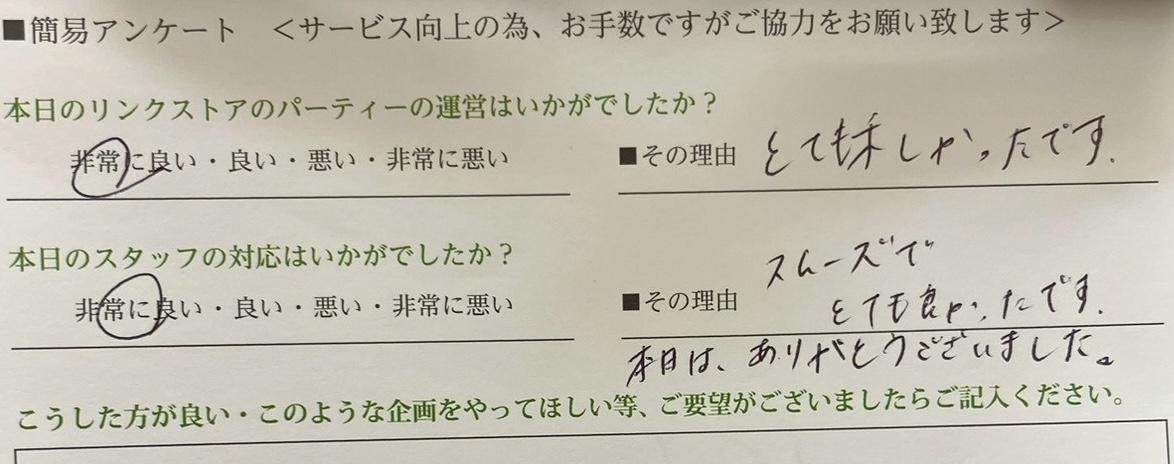 ■簡易アンケート <サービス向上の為、お手数ですがご協力をお願い致します>
本日のリンクストアのパーティーの運営はいかがでしたか？
非常に良い・良い・悪い・非常に悪い ■その理由 とてもしかったです.
本日のスタッフの対応はいかがでしたか？
スムーズで
非常に良い・良い・悪い・非常に悪い ■その理由 とても良かったです.
本日は、ありがとうございました。
こうした方が良い・このような企画をやってほしい等、ご要望がございましたらご記入ください。